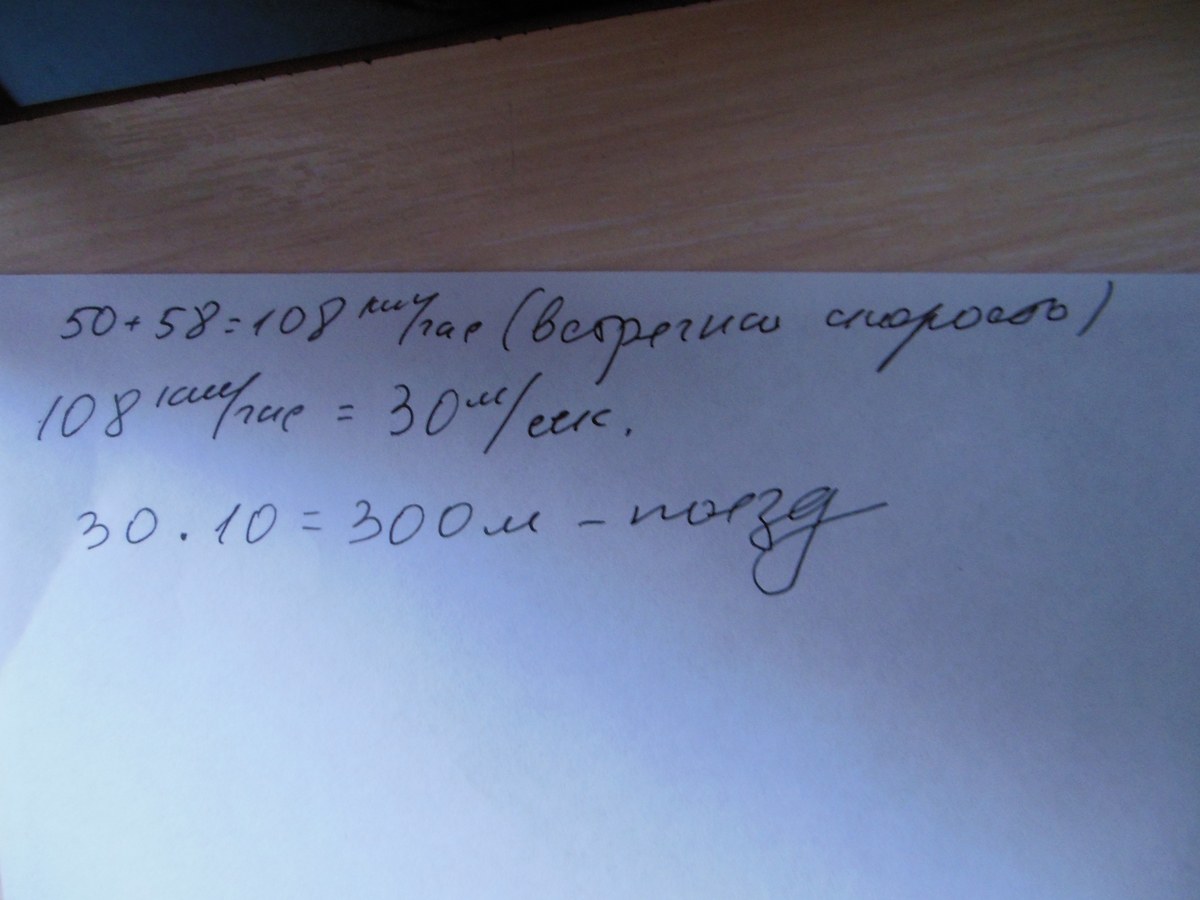 50+58=108 км/час (встречная скорость)
108 км/час = 30 м/сек.
30 . 10 = 300 м - поезд